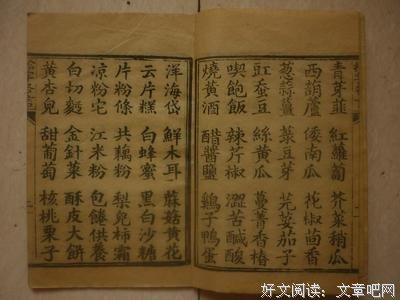 青芽韭 紅蘿蔔 芥菜稍瓜
西葫蘆 倭南瓜 花椒茴香
葱蒜薑 菉豆芽 芫荽茄子
豇蚕豆 絲黄瓜 蔓菁香椿
喫飽飯 辣芹椒 澀苦鹹酸
燒黄酒 醋醬鹽 鷄子鴨蛋
洋海岱 鮮木耳 蘇菇黄花
云片糕 白蜂蜜 黑白沙糖
片粉條 共藕粉 梨皃柿霜
凉粉宅 江米粉 包餹供餐
白切麪 金針菜 酥皮大餅
黄杏皃 甜葡萄 核桃栗子
好文阅读：文章吧网